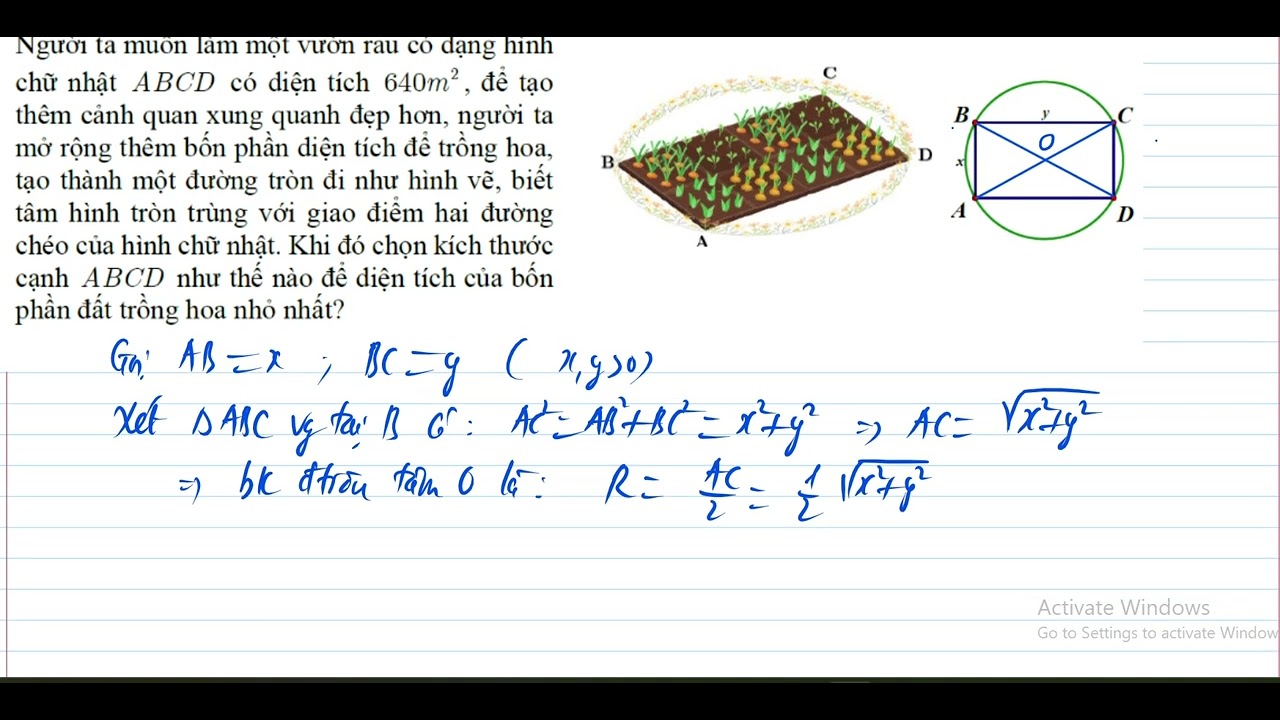 Người ta muốn làm một vườn rau có dạng hình
chữ nhật ABCD có diện tích 640m², để tạo
thêm cảnh quan xung quanh đẹp hơn, người ta
mở rộng thêm bốn phần diện tích để trồng hoa,
tạo thành một đường tròn đi như hình vẽ, biết
tâm hình tròn trùng với giao điểm hai đường
chéo của hình chữ nhật. Khi đó chọn kích thước
cạnh ABCD như thế nào để diện tích của bốn
phần đất trồng hoa nhỏ nhất?
C
B
D
A
B
y
C
O
x
A
D
Gọi AB = x ; BC = y ( x, y > 0)
Xét Δ ABC vg tại B có: AC² = AB² + BC² = x² + y² => AC = √x²+y²
=> bk đtròn tâm O là: R = AC/2 = 1/2 √x²+y²
Activate Windows
Go to Settings to activate Window